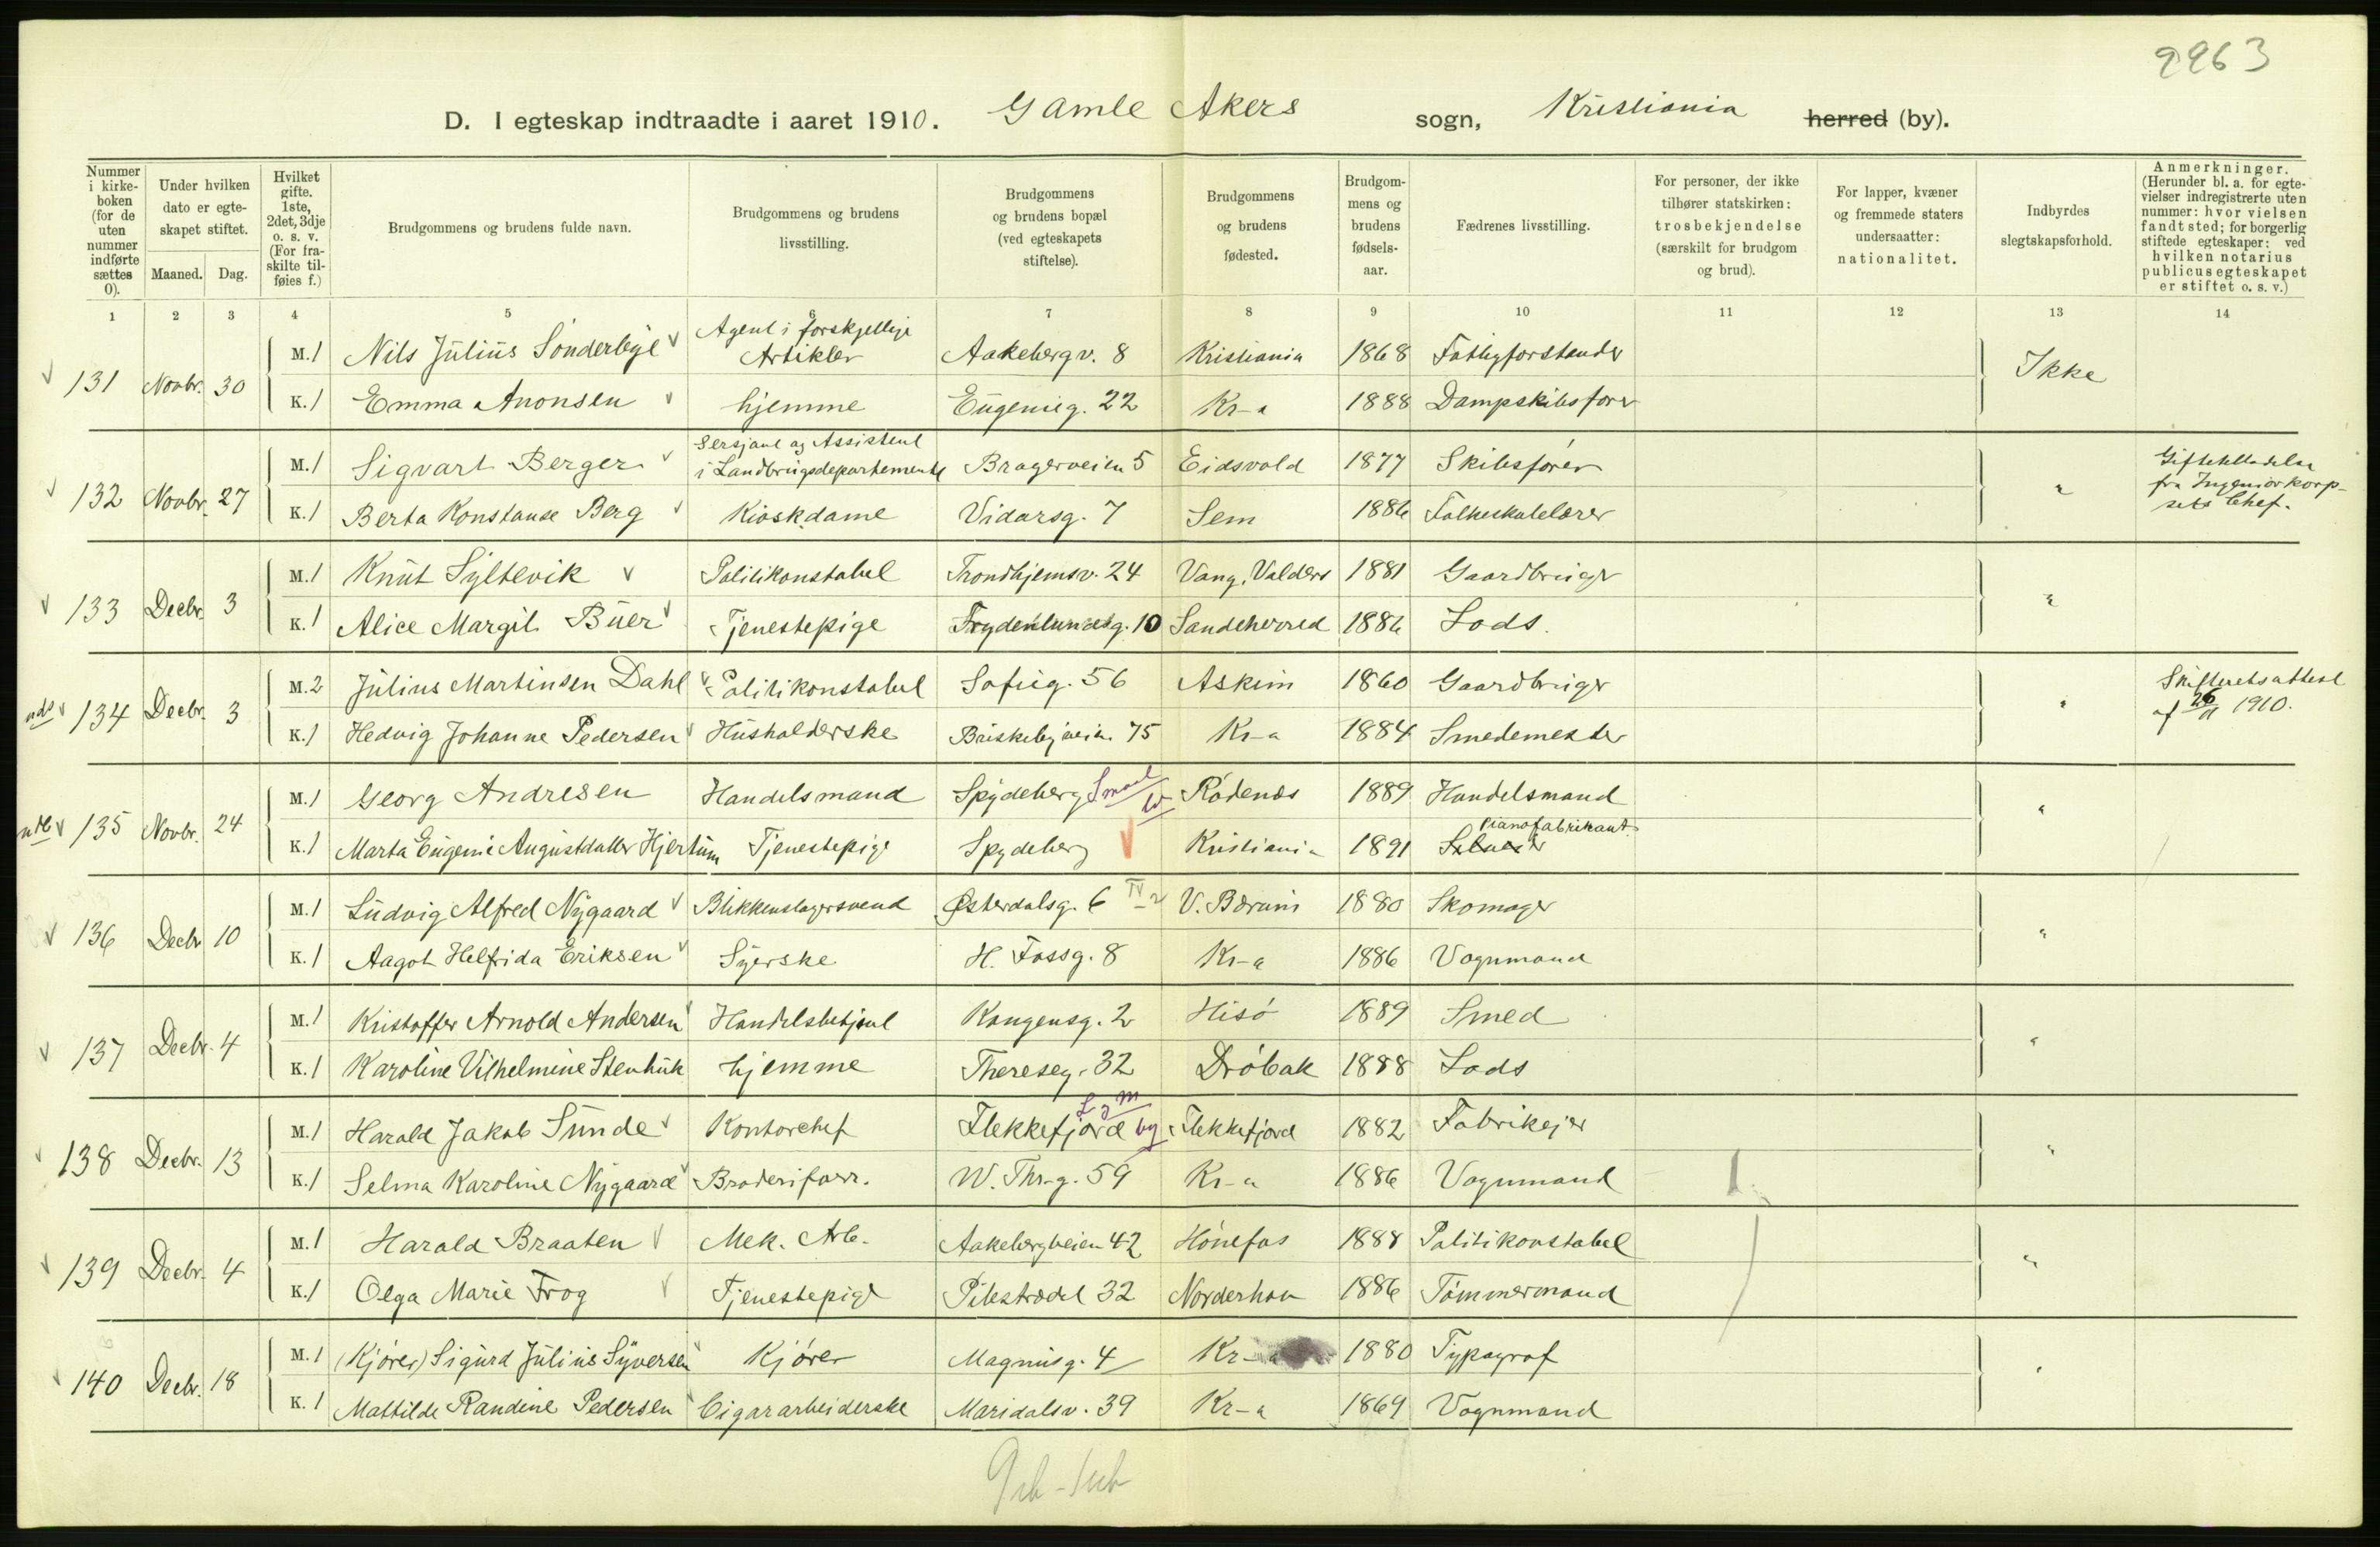 2263
D. I egteskap indtraadte i aaret 1910. Gamle Akers sogn, Kristiania herred (by).
Nummer i kirkeboken (for de uten nummer indførte sættes 0).
Under hvilken dato er egteskapet stiftet.
Maaned. Dag.
Hvilket gifte. 1ste, 2det, 3dje o. s. v. (For fraskilte tilføies f.)
Brudgommens og brudens fulde navn.
Brudgommens og brudens livsstilling.
Brudgommens og brudens bopæl (ved egteskapets stiftelse).
Brudgommens og brudens fødested.
Brudgommens og brudens fødselsaar.
Fædrenes livsstilling.
For personer, der ikke tilhører statskirken: trosbekjendelse (særskilt for brudgom og brud).
For lapper, kvæner og fremmede staters undersaatter: nationalitet.
Indbyrdes slegtskapsforhold.
Anmerkninger. (Herunder bl. a. for egtevielser indregistrerte uten nummer: hvor vielsen fandt sted; for borgerlig stiftede egteskaper: ved hvilken notarius publicus egteskapet er stiftet o. s. v.)
1 2 3 4 5 6 7 8 9 10 11 12 13 14
131 Novbr. 30 M. 1 Nils Julius Sønderbye Agent i forskjellige Artikler Aakebergv. 8 Kristiania 1868 Fattigforstander Ikke
K. 1 Emma Anonsen hjemme Eugenieg. 22 Kr-a 1888 Dampskibsfører
132 Novbr. 27 M. 1 Sigvart Berger Sersjant og Assistent i Landbrugsdepartementet Brageveien 5 Eidsvold 1877 Skibsfører " Giftetilladelse fra Ingeniørkorpsets Chef.
K. 1 Berta Konstanse Berg Kioskdame Vidarsg. 7 Sem 1886 Folkeskolelærer
133 Decbr. 3 M. 1 Knut Syltevik Politikonstabel Trondhjemsv. 24 Vang, Valders 1881 Gaardbruger "
K. 1 Alice Margit Buer Tjenestepige Frydenlundsg. 10 Sandeherred 1886 Lods.
134 Decbr. 3 M. 2 Julius Martinsen Dahl Politikonstabel Sofieg. 56 Askim 1860 Gaardbruger " Skifteretsattest af 26/11 1910.
K. 1 Hedvig Johanne Pedersen Husholderske Briskebyveien 75 Kr-a 1884 Smedemester
135 Novbr. 24 M. 1 Georg Andresen Handelsmand Spydeberg Smaal Rødenes 1889 Handelsmand "
K. 1 Marta Eugenie Augustdatter Hjertum Tjenestepige Spydeberg Kristiania 1891 Pianofabrikant
136 Decbr. 10 M. 1 Ludvig Alfred Nygaard Blikkenslagersvend Østerdalsg. 6 IV V. Bærum 1880 Skomager "
K. 1 Aagot Helfrida Eriksen Syerske H. Fossg. 8 Kr-a 1886 Vognmand
137 Decbr. 4 M. 1 Kristoffer Arnold Andersen Handelsbetjent Kongensg. 2 Hisø 1889 Smed "
K. 1 Karoline Vilhelmine Stenhuk hjemme Thereseg. 32 Drøbak 1888 Lods
138 Decbr. 13 M. 1 Harald Jakob Sunde Kontorchef Flekkefjord by L & M Flekkefjord 1882 Fabrikejer "
K. 1 Selma Karoline Nygaard Broderiforr. W. Thr-g. 59 Kr-a 1886 Vognmand 1.
139 Decbr. 4 M. 1 Harald Braaten Mek. Arb. Aakebergveien 42 Hønefos 1888 Politikonstabel "
K. 1 Olga Marie Frog Tjenestepige Pilestrædet 32 Norderhov 1886 Tømmermand
140 Decbr. 18 M. 1 (Kjører) Sigurd Julius Syversen Kjører Magnusg. 4 Kr-a 1880 Typograf "
K. 1 Mathilde Randine Pedersen Cigararbeiderske Maridalsv. 39 Kr-a 1869 Vognmand